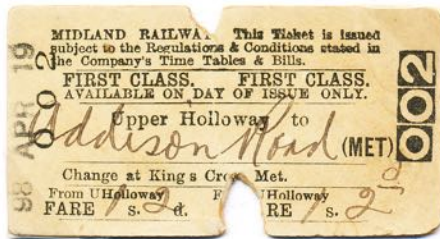 MIDLAND RAILWAY. This Ticket is issued
subject to the Regulations & Conditions stated in
the Company's Time Tables & Bills.
FIRST CLASS. FIRST CLASS.
AVAILABLE ON DAY OF ISSUE ONLY.
Upper Holloway to
Addison Road (MET)
Change at King s Cross Met.
From UHolloway F UHolloway
FARE 1 s. 2 d. RE 1 s. 2 d
98 APR 19
002
002